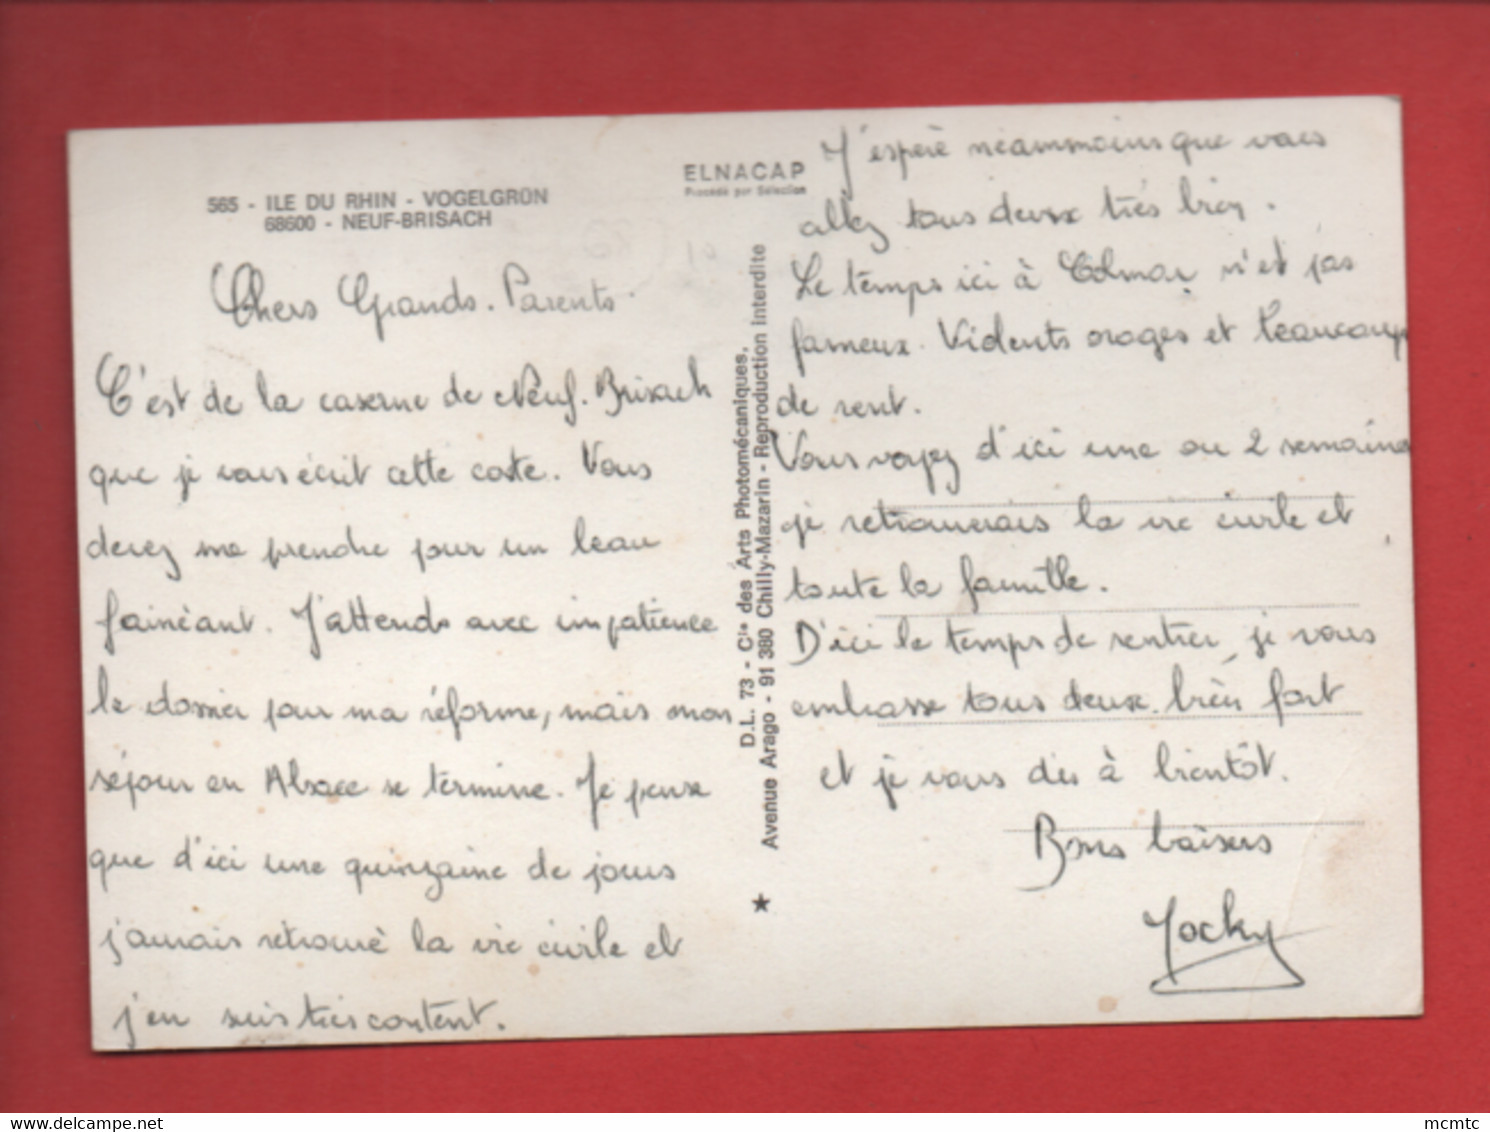 565 - ILE DU RHIN - VOGELGRÜN
68600 - NEUF-BRISACH
ELNACAP
Procédé par Sélection
Chers Grands-Parents.
C'est de la caserne de Neuf-Brisach
que je vous écrit cette carte. Vous
devez me prendre pour un beau
fainéant. J'attends avec impatience
le dossier pour ma réforme, mais mon
séjour en Alsace se termine. Je pense
que d'ici une quinzaine de jours
j'aurais retrouvé la vie civile et
j'en suis très content.
D.L. 73 - Cie des Arts Photomécaniques,
Avenue Arago - 91 380 Chilly-Mazarin - Reproduction Interdite
J'espère néammoins que vous
allez tous deux très bien.
Le temps ici à Colmar n'est pas
fameux. Violents orages et beaucoup
de vent.
Vous voyez d'ici une ou 2 semaines
je retrouverais la vie civile et
toute la famille.
D'ici le temps de rentrer, je vous
embrasse tous deux bien fort
et je vous dis à bientôt.
Bons baisers
Jocky
delcampe.net
mcmtc